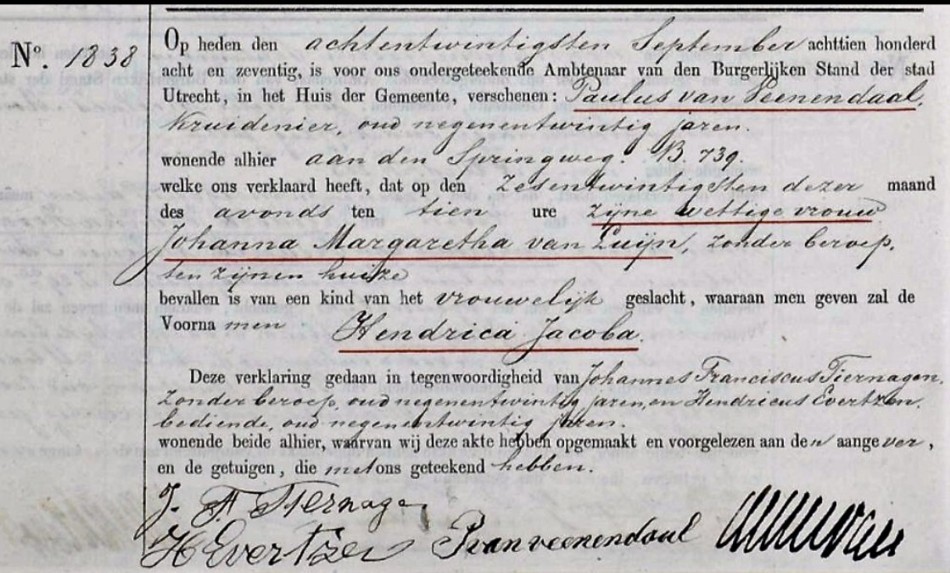 Nº. 1838
Op heden den achtentwintigsten September achttien honderd
acht en zeventig, is voor ons ondergeteekende Ambtenaar van den Burgerlijken Stand der stad
Utrecht, in het Huis der Gemeente, verschenen: Paulus van Veenendaal,
Kruidenier, oud negenentwintig jaren.
wonende alhier aan den Springweg. B. 739.
welke ons verklaard heeft, dat op den Zesentwintigsten dezer maand
des avonds ten tien ure zijne wettige vrouw
Johanna Margaretha van Luijn, zonder beroep,
ten zijnen huize
bevallen is van een kind van het vrouwelijk geslacht, waaraan men geven zal de
Voornamen Hendrica Jacoba.
Deze verklaring gedaan in tegenwoordigheid van Johannes Franciscus Tiernagen,
Zonder beroep, oud negenentwintig jaren, en Hendricus Evertzen,
bediende, oud negenentwintig jaren.
wonende beide alhier, waarvan wij deze akte hebben opgemaakt en voorgelezen aan den aangever,
en de getuigen, die met ons geteekend hebben.
J. F. Tiernagen
H Evertzen P van veenendaal